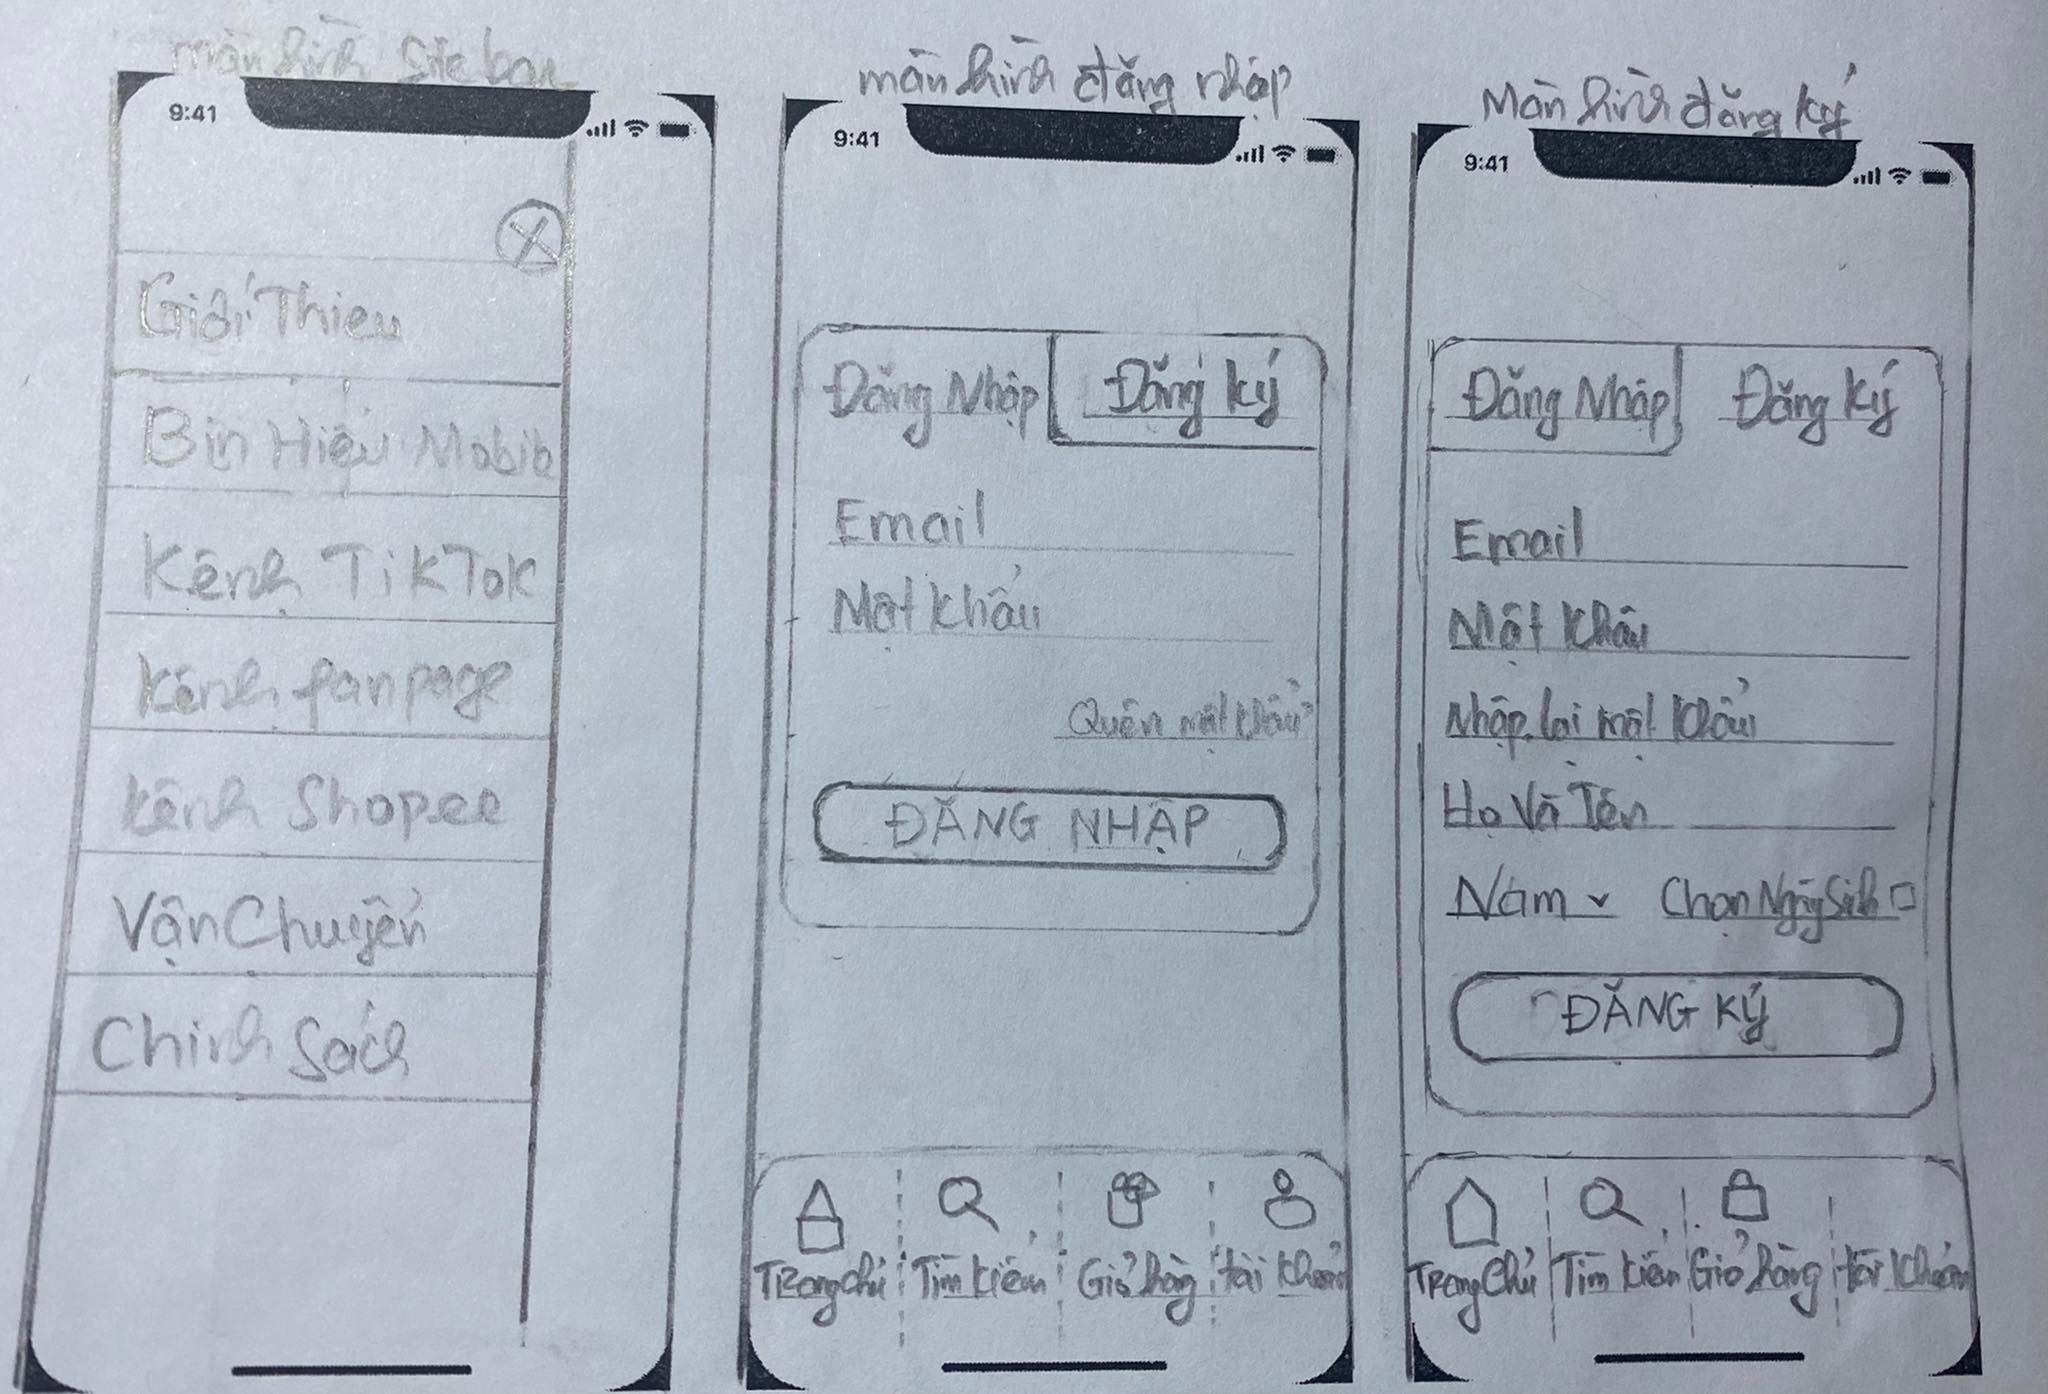 màn hình Site bar
9:41
Giới Thieu
Bin Hiệu Mobile
Kênh TikTok
Kênh fanpage
Kênh Shopee
Vận Chuyển
Chinh Sách
màn hình đăng nhập
9:41
Đăng Nhập
Đăng ký
Email
Mật khẩu
Quên mật khẩu?
ĐĂNG NHẬP
Trang chủ
Tìm kiếm
Giỏ hàng
tài khoản
Màn hình đăng ký
9:41
Đăng Nhập
Đăng ký
Email
Mật Khẩu
Nhập lại mật khẩu
Họ Và Tên
Nam
Chọn Ngày Sinh
ĐĂNG KÝ
Trang Chủ
Tìm kiếm
Giỏ hàng
tài khoản